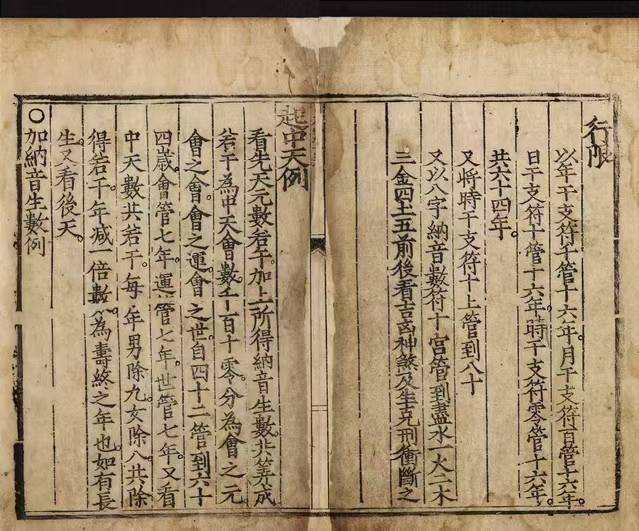 行限
以年干支符千管十六年月干支符百管十六年
日干支符十管十六年時干支符零管十六年
共六十四年
又將時干支符十上管到八十
又以八字納音數符十宮管到盡水一火二木
三金四土五前後看吉凶神煞及生克刑衝斷之
起中天例
看先天元數若干加上所得納音生數共筭成
若干為中天會數千百十零分為會之元
會之會會之運會之世自四十二管到六十
四歲會管七年運管七年世管七年又看
中天數共若干每年男除九女除八共除
得若干年減一倍數為壽終之年也如有長
生又看後天
○加納音生數例